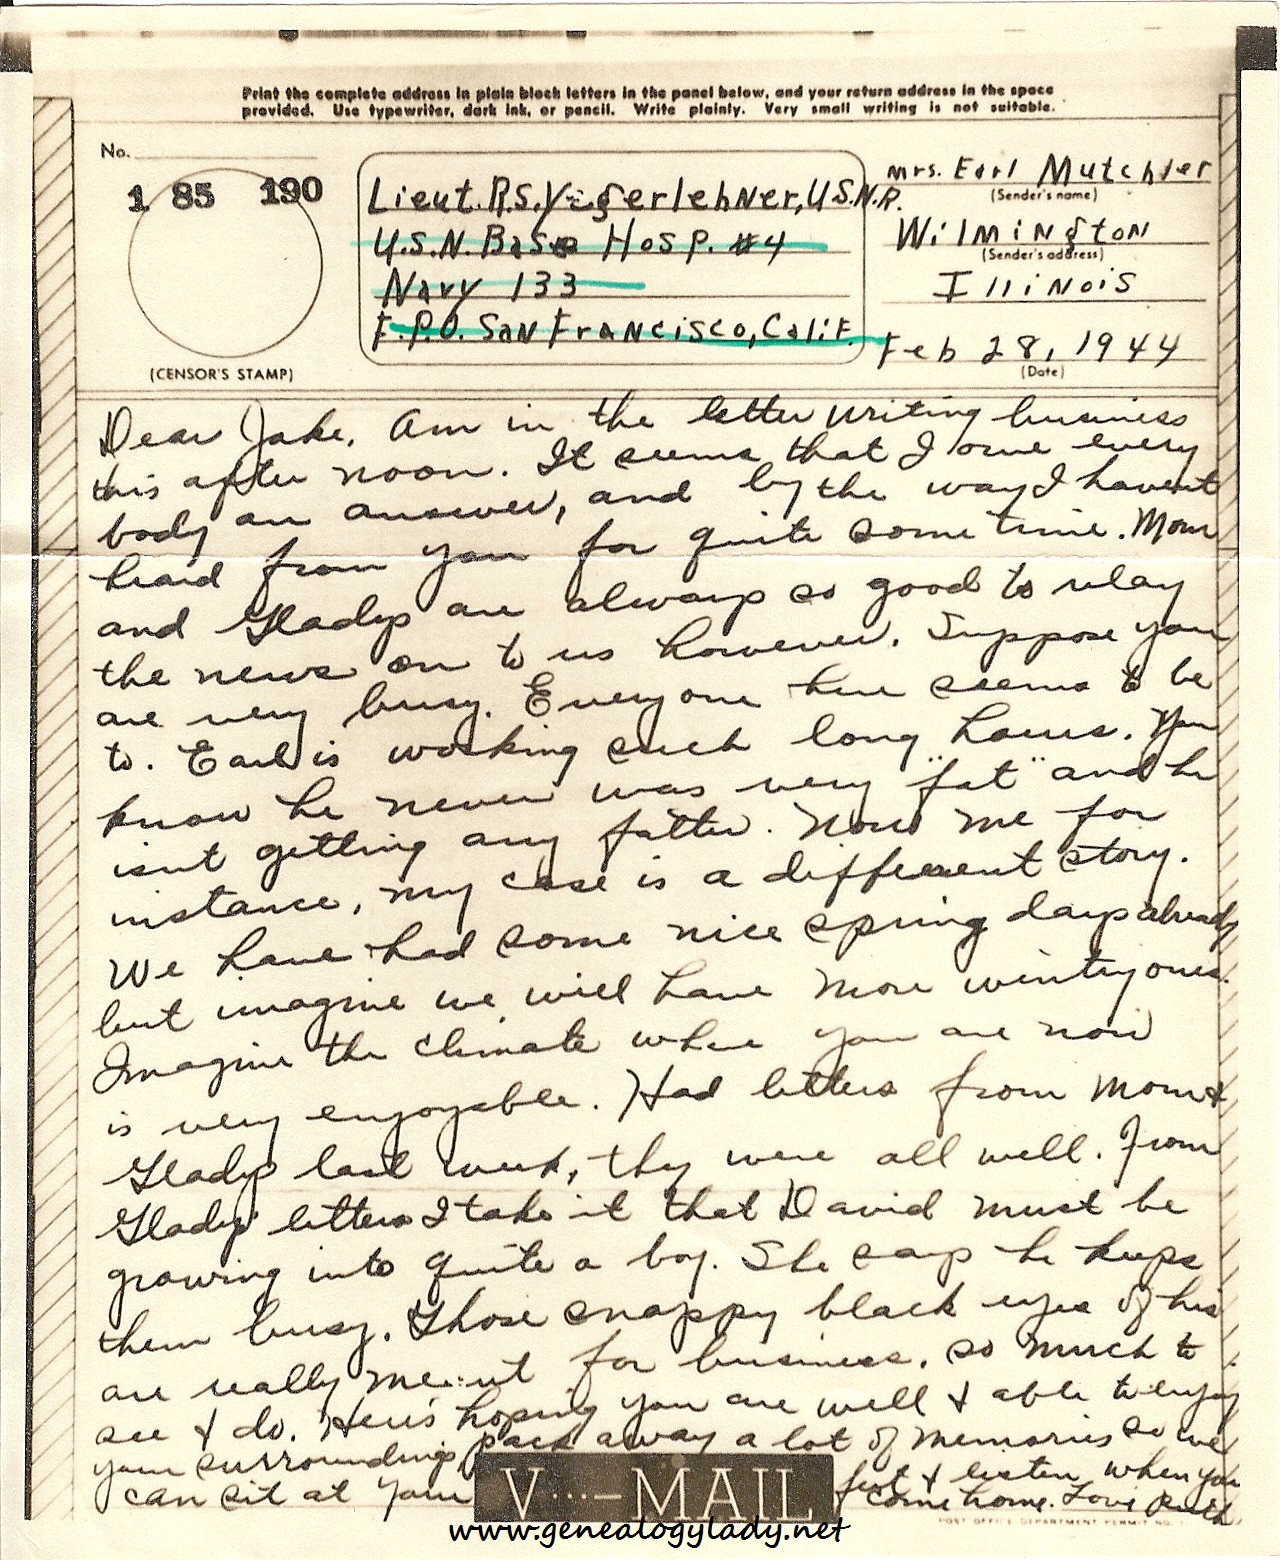 Print the complete address in plain block letters in the panel below, and your return address in the space
provided. Use typewriter, dark ink, or pencil. Write plainly. Very small writing is not suitable.
No.
1 85 190
(CENSOR'S STAMP)
Lieut. R.S. Yegerlehner, U.S.N.R.
U.S.N. Base Hosp. #4
Navy 133
F.P.O. San Francisco, Calif.
Mrs. Earl Mutchler
(Sender's name)
Wilmington
(Sender's address)
Illinois
Feb 28, 1944
(Date)
Dear Jake, Am in the letter writing business
this after noon. It seems that I owe every
body an answer, and by the way I havent
heard from you for quite some time. Mom
and Gladys are always so good to relay
the news on to us however. Suppose you
are very busy. Everyone here seems to be
to. Earl is working such long hours. You
know he never was very "fat" and he
isnt getting any fatter. Now me for
instance, my case is a different story.
We have had some nice spring days already
but imagine we will have more wintry ones.
Imagine the climate where you are now
is very enjoyable. Had letters from Mom &
Gladys last week, they were all well. From
Gladys' letters I take it that David must be
growing into quite a boy. She says he keeps
them busy. Those snappy black eyes of his
are really meant for business. so much to
see & do. Here's hoping you are well & able to enjoy
your surroundings pack away a lot of memories so we
can sit at your feet & listen when you
come home. Love Ruth
V ...- MAIL
POST OFFICE DEPARTMENT PERMIT NO.
www.genealogylady.net